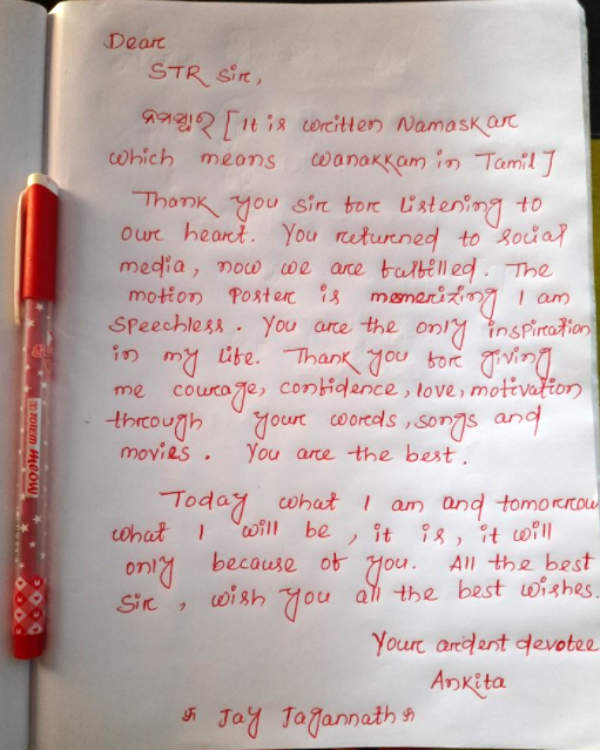 Dear
STR Sir,
ନମସ୍କାର [It is written Namaskar
which means wanakkam in Tamil]
Thank you sir for listening to
our heart. You returned to social
media, now we are fulfilled. The
motion poster is memerizing I am
speechless. You are the only inspiration
in my life. Thank you for giving
me courage, confidence, love, motivation
through your words, songs and
movies. You are the best.
Today what I am and tomorrow
what I will be, it is, it will
only because of you. All the best
Sir, wish you all the best wishes.
Your ardent devotee
Ankita
卐 Jay Jagannath 卐
meow